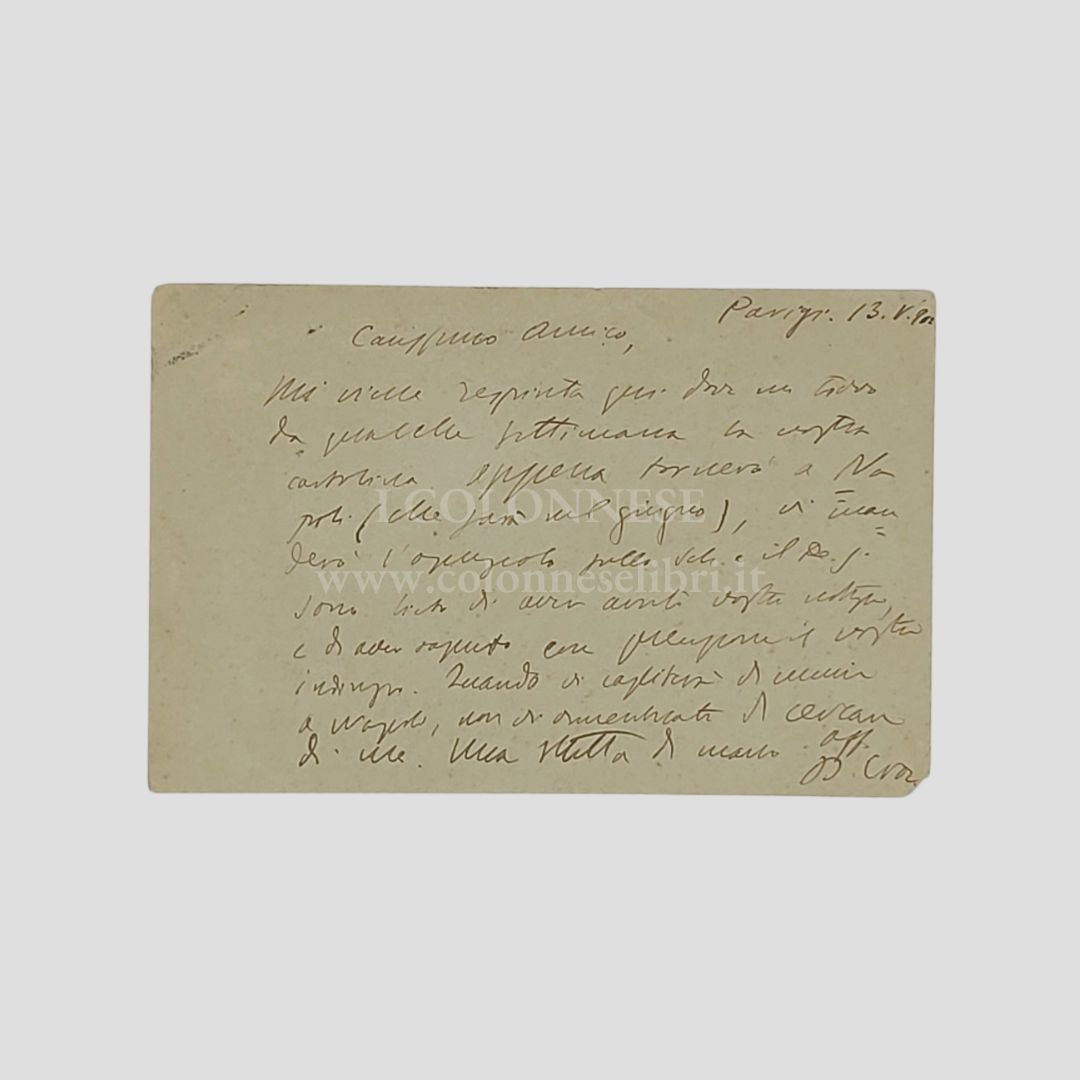 Parigi. 13. V.
Carissimo Amico,
Mi viene respinta qui dove mi trovo
da qualche settimana la vostra
cartolina. Appena tornerò a Na
poli (che sarà nel giugno), vi man
derò l'opuscolo sullo Sch. e il De S.
Sono lieto di aver avuto vostre notizie,
e di aver saputo con precisione il vostro
indirizzo. Quando vi capiterà di venire
a Napoli, non vi dimenticate di cercare
di me. Una stretta di mano aff.
B. Croce
I COLONNESE
www.colonneselibri.it